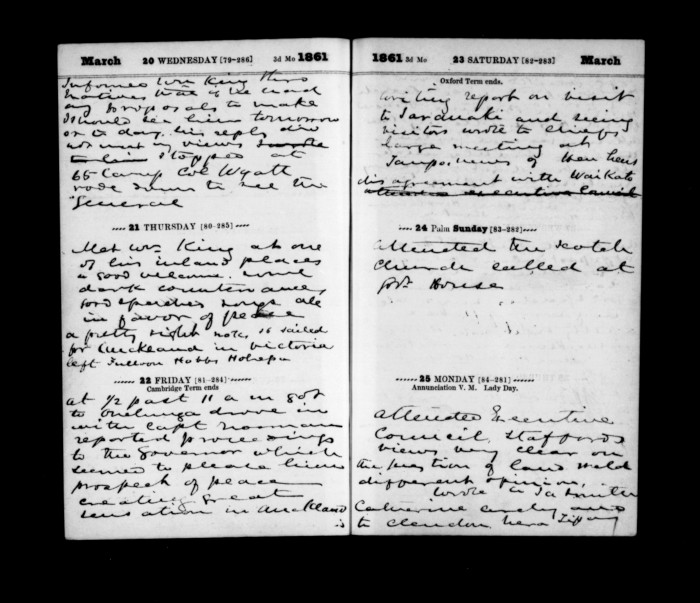 March 20 WEDNESDAY [79-286] 3d Mo 1861
Informed Wm King this
motion that if he had
any proposals to make
I should see him tomorrow
or to day. his reply did
not meet my views
stopped at
65 Camp Col Wyatt
rode down to see the
General
21 THURSDAY [80-285]
Met Wm King at one
of his inland places
a good welcome. some
dark countenances
good speeches songs all
in favor of peace
a pretty sight not. 16 sailed
for Auckland in Victoria
left Fulloon Hobbs
22 FRIDAY [81-284]
Cambridge Term ends
at 1/2 past 11 a m got
to Onehunga drove in
with Capt Norman
reported proceedings
to the Governor which
seemed to please him
prospect of peace
creating great
sensation in Auckland
is
1861 3d Mo 23 SATURDAY [82-283] March
Oxford Term ends.
writing report on visit
to Taranaki and seeing
visitors wrote to chiefs
large meeting at
Taupo. news of
disagreement with Waikato
attended executive Council
24 Palm Sunday [83-282]
attended the Scotch
Church called at
Govt House
25 MONDAY [84-281]
Annunciation V. M. Lady Day.
attended Executive
Council, Staffords
views very clear on
the question of land held
different opinion.
wrote to Ja Smith
Catherine and
to Clendon